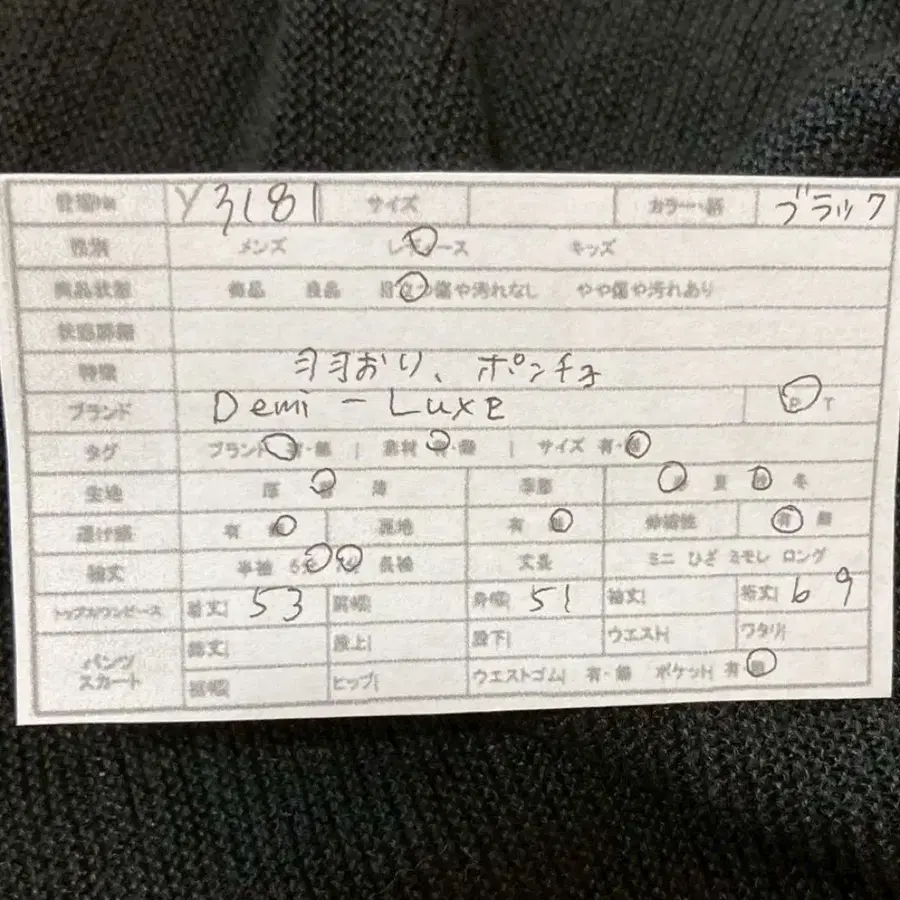 管理No Y3181 サイズ カラー・柄 ブラック
性別 メンズ レディース キッズ
商品状態 備品 良品 目立つ傷や汚れなし やや傷や汚れあり
状態詳細
特徴 羽おり、ポンチョ
ブランド Demi-Luxe P T
タグ ブランド 有・無 | 素材 有・無 | サイズ 有・無
生地 厚 薄 季節 夏 秋 冬
透け感 有 無 裏地 有 無 伸縮性 有 無
袖丈 半袖 長袖 丈長 ミニ ひざ ミモレ ロング
トップス/ワンピース 着丈| 53 肩幅| 身幅| 51 袖丈| 裄丈| 69
パンツ スカート 総丈| 股上| 股下| ウエスト| ワタリ|
裾幅| ヒップ| ウエストゴム| 有・無 ポケット| 有 無